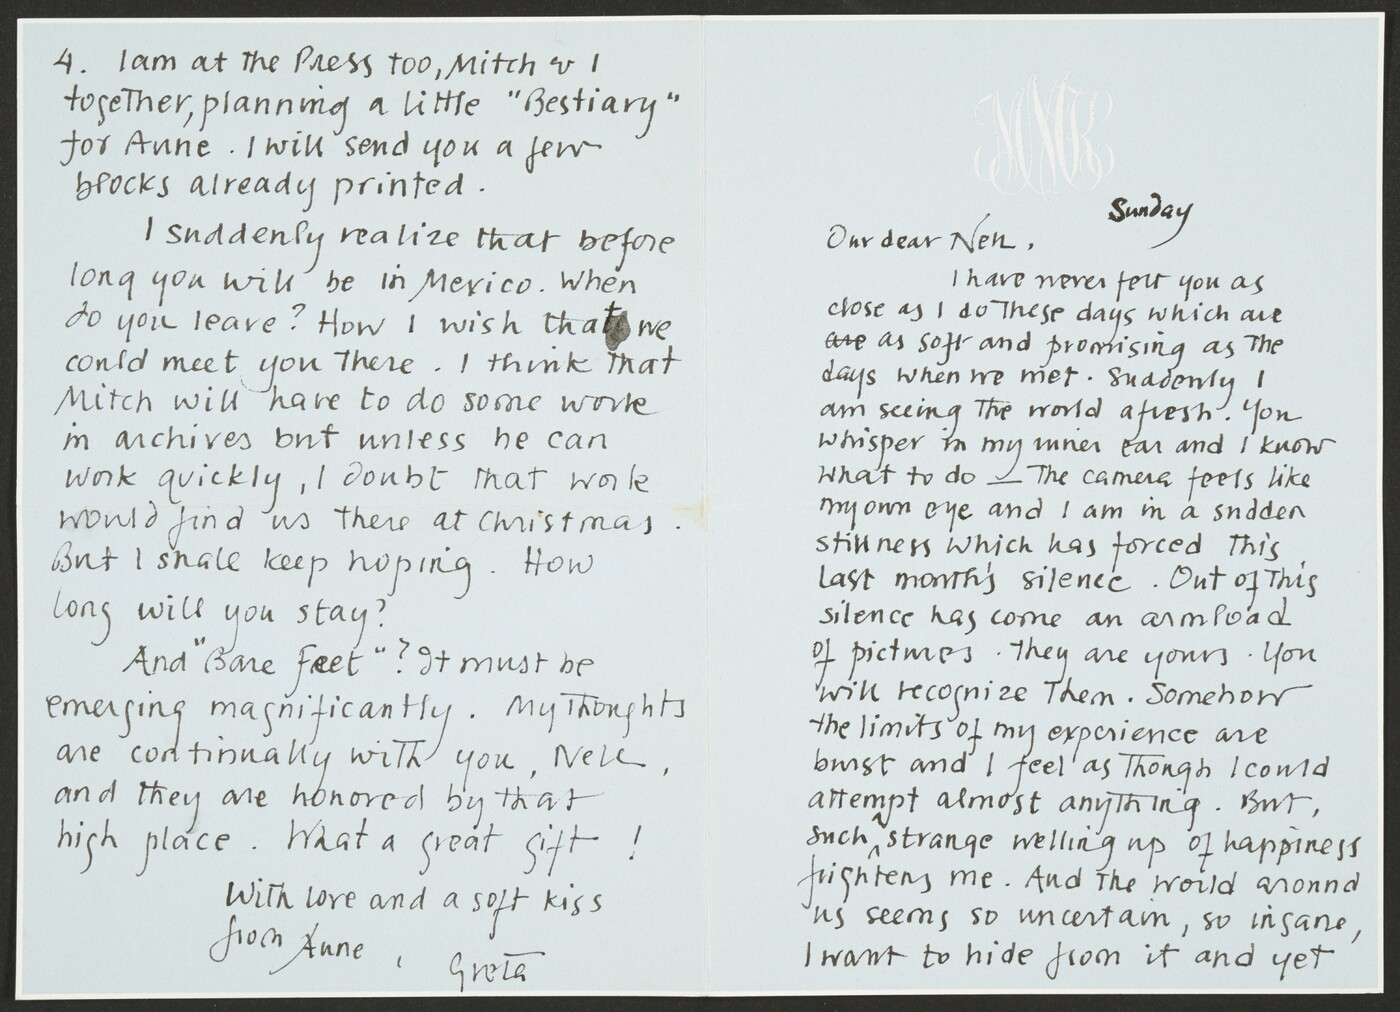 4. I am at the Press too, Mitch & I
together, planning a little "Bestiary"
for Anne. I will send you a few
blocks already printed.
I suddenly realize that before
long you will be in Mexico. When
do you leave? How I wish that we
could meet you there. I think that
Mitch will have to do some work
in archives but unless he can
work quickly, I doubt that work
would find us there at Christmas.
But I shall keep hoping. How
long will you stay?
And "Bare Feet"? It must be
emerging magnificantly. My thoughts
are continually with you, Nell,
and they are honored by that
high place. What a great gift!
With love and a soft kiss
from Anne,
Greta
MNK
Sunday
Our dear Nell,
I have never felt you as
close as I do these days which are
are as soft and promising as the
days when we met. Suddenly I
am seeing the world afresh. You
whisper in my inner ear and I know
what to do — The camera feels like
my own eye and I am in a sudden
stillness which has forced this
last month's silence. Out of this
silence has come an armload
of pictures. They are yours. You
will recognize them. Somehow
the limits of my experience are
burst and I feel as though I could
attempt almost anything. But,
such a strange welling up of happiness
frightens me. And the world around
us seems so uncertain, so insane,
I want to hide from it and yet